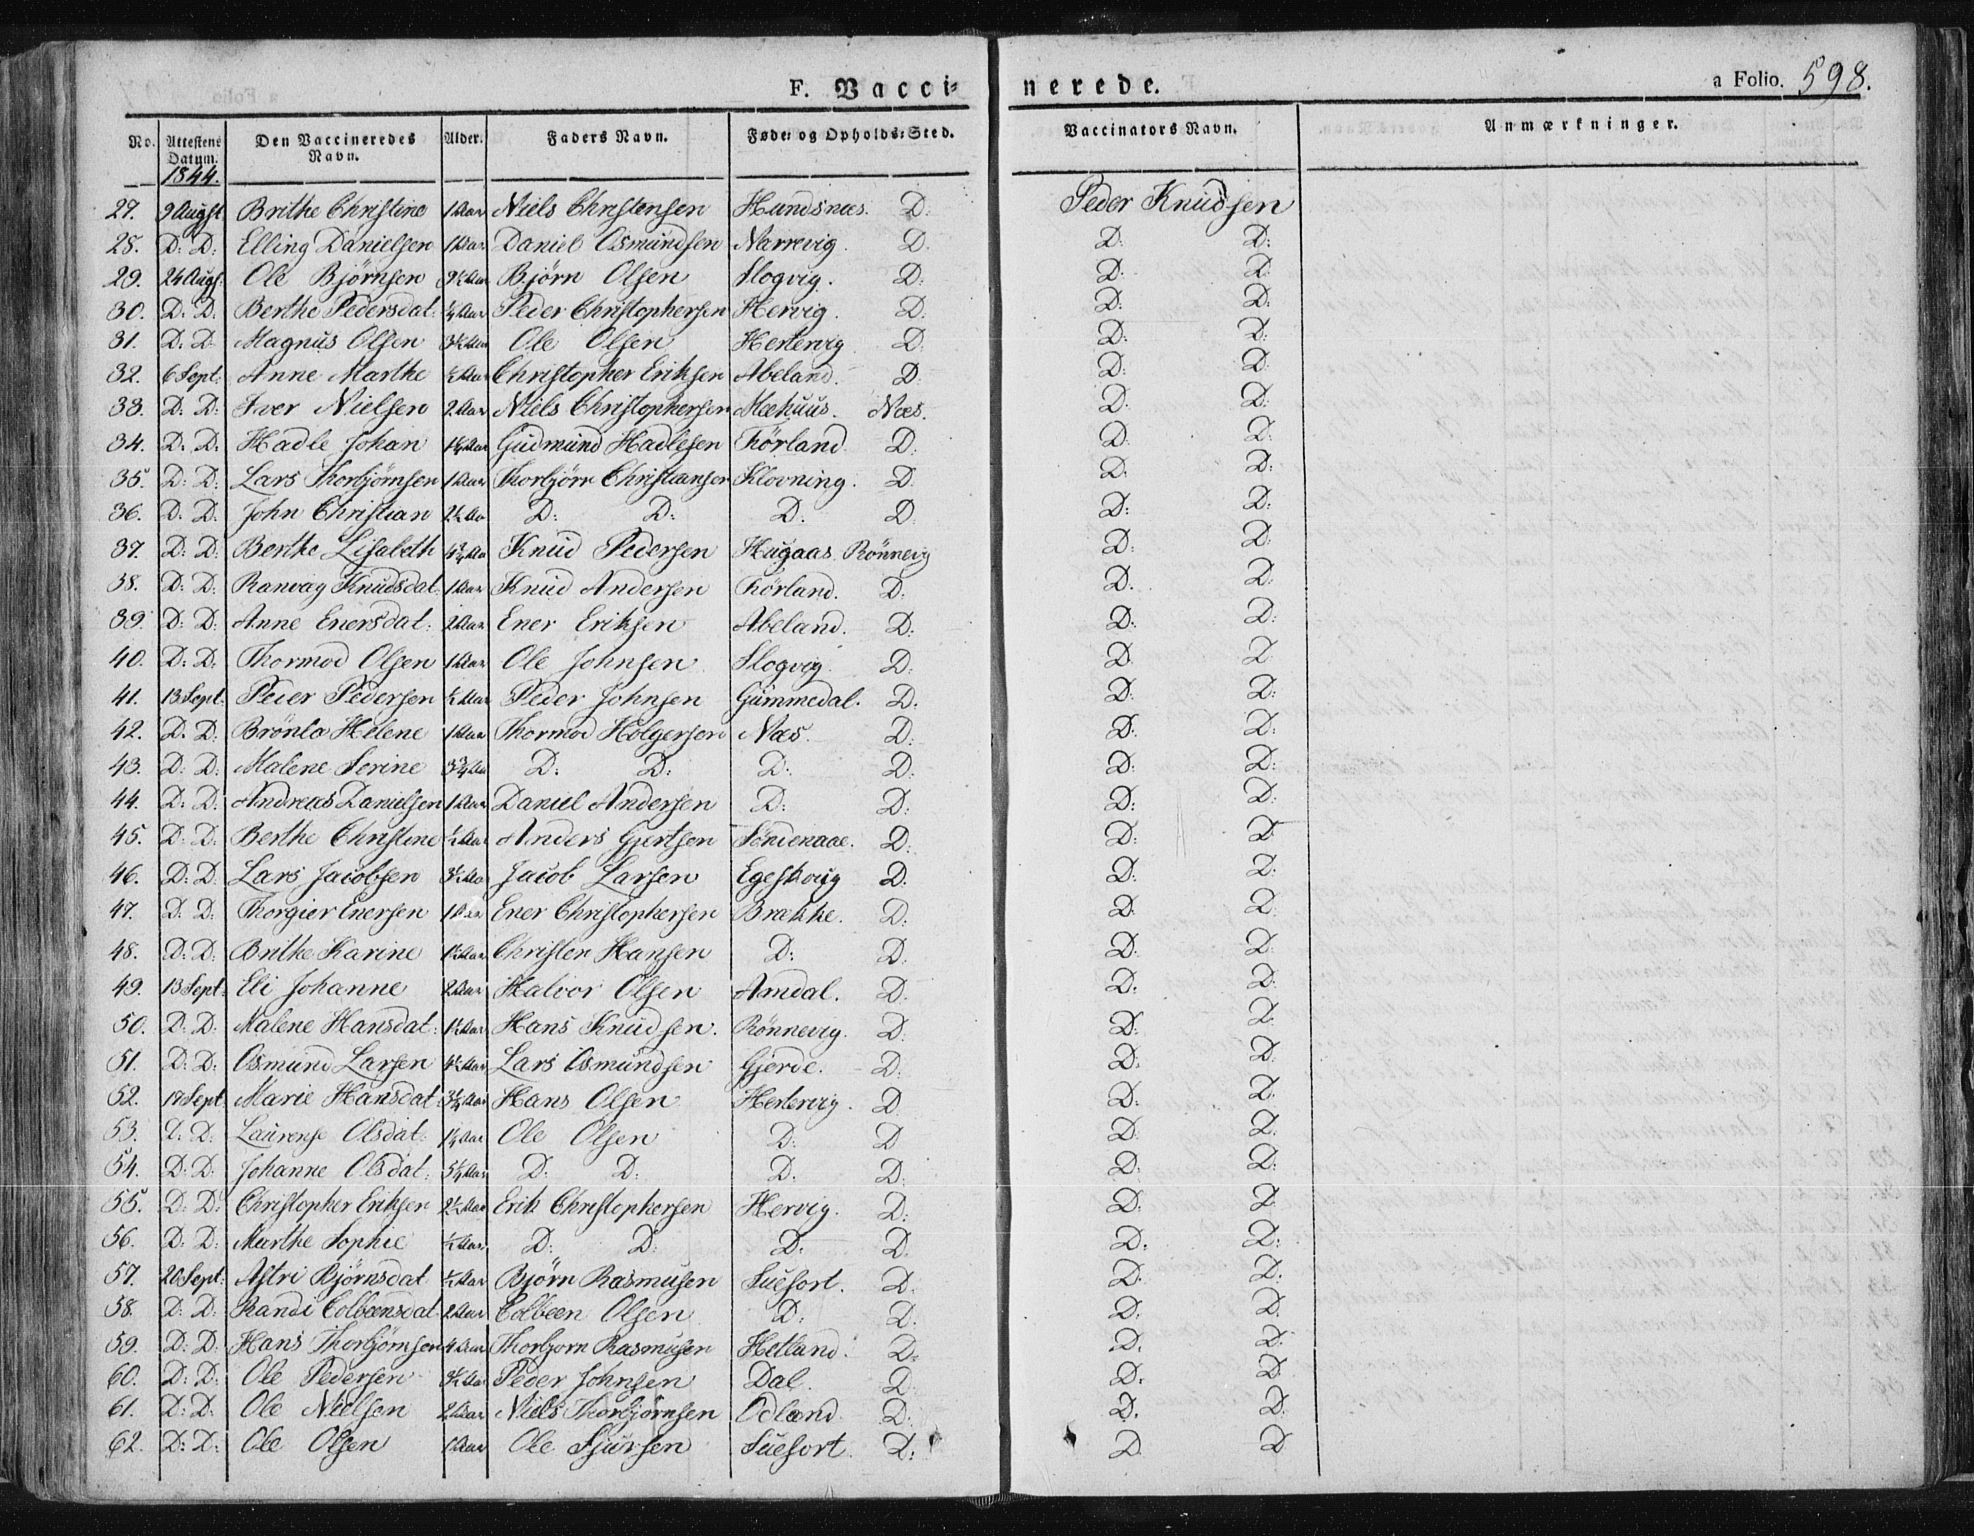 F. Vaccinerede. a Folio. 598.
No. Attestens Datum. Den Vaccineredes Navn. Alder. Faders Navn. Føde- og Opholds-Sted. Vaccinators Navn. Anmærkninger.
1844.
27. 9 Augst Brithe Christine 1 Aar Niels Christensen Hundsnæs. D: Peder Knudsen
28. D: D: Elling Danielsen 1 Aar Daniel Osmundsen Narrevig. D. D: D:
29. 24 Augs. Ole Bjørnsen Aar Bjørn Olsen Slogvig. D: D: D:
30. D: D: Berthe Pedersdat: ¼ Aar Peder Christophersen Hervig. D: D: D:
31. D: D: Magnus Olsen 3½ Aar Ole Olsen Hertervig D: D: D:
32. 6 Sept: Anne Marthe ½ Aar Christopher Eriksen Abeland. D: D: D:
33. D: D: Iver Nielsen 2 Aar Niels Christophersen Mæhuus. Næs. D: D:
34. D: D: Hadle Johan 1¼ Aar Gudmund Hadlesen Førland. D: D: D:
35. D: D: Lars Thorbjørnsen 1 Aar Thorbjørn Christiansen Klovning. D. D: D:
36. D: D: John Christian 2½ Aa D: D: D: D D: D:
37. D: D: Berthe Lisabeth 4¾ Aa Knud Pedersen Hugaas. Rønnevig D: D:
38. D: D: Ranvag Knudsdat: 1 Aar Knud Andersen Førland. D: D. D:
39. D: D: Anne Enersdat: 2 Aar Ener Eriksen Abeland. D: D: D:
40. D: D: Thormod Olsen 1 Aar Ole Johnsen Slogvig. D: D. D.
41. 13 Sept. Peder Pedersen ½ Aar Peder Johnsen Gummedal. D: D: D:
42. D. D: Brønla Helene 1 Aar Thormod Holgersen Næs. D: D: D:
43. D: D: Malene Serine 3¾ Aa D: D: D: D: D: D:
44. D: D: Andreas Danielsen 1 Aar Daniel Andersen D: D: D: D:
45. D: D: Berthe Christine ½ Aar Anders Gjertsen Søndenaae. D: D: D.
46. D: D: Lars Jacobsen 3½ Aa Jacob Larsen Egeskoug D: D: D:
47. D: D: Thorgier Enersen 1 Aar Ener Christophersen Brække. D: D: D:
48. D: D: Brithe Karine 1½ Aar Christen Hansen D: D: D: D:
49. 13 Sept: Eli Johanne 2 Aar Halvor Olsen Amdal. D: D: D:
50. D: D: Malene Hansdat: 1½ Aar Hans Knudsen. Rønnevig. D: D: D:
51. D: D: Osmund Larsen 4½ Aar Lars Osmundsen Gjerde. D: D: D:
52. 19 Sept. Marie Hansdat: 3¼ Aar Hans Olsen Hertervig. D D: D:
53. D: D: Laurense Olsdat: 1¼ Aar Ole Olsen D: D D: D:
54. D: D: Johanne Olsdat: 5¼ Aar D: D: D: D: D: D:
55. D: D: Christopher Eriksen 2½ Aar Erik Christophersen Hervig. D: D: D:
56. D: D: Marthe Sophie ½ Aar D: D: D: D. D: D:
57. 20 Sept: Astri Bjørnsdat ½ Aar Bjørn Rasmusen Suefort. D: D: D:
58. D: D: Randi Colbeensdat: 2 Aar Colbeen Olsen D: D: D: D:
59. D: D: Hans Thorbjørnsen 4 Aar Thorbjørn Rasmusen Hetland. D: D: D:
60. D: D: Ole Pedersen Aar Peder Johnsen Dal. D: D: D:
61. D: D: Ole Nielsen 2 Aar Niels Thorbjørnsen Odland. D: D: D:
62. D: D: Ole Olsen 1 Aar Ole Sjursen Suefort. D: D. D